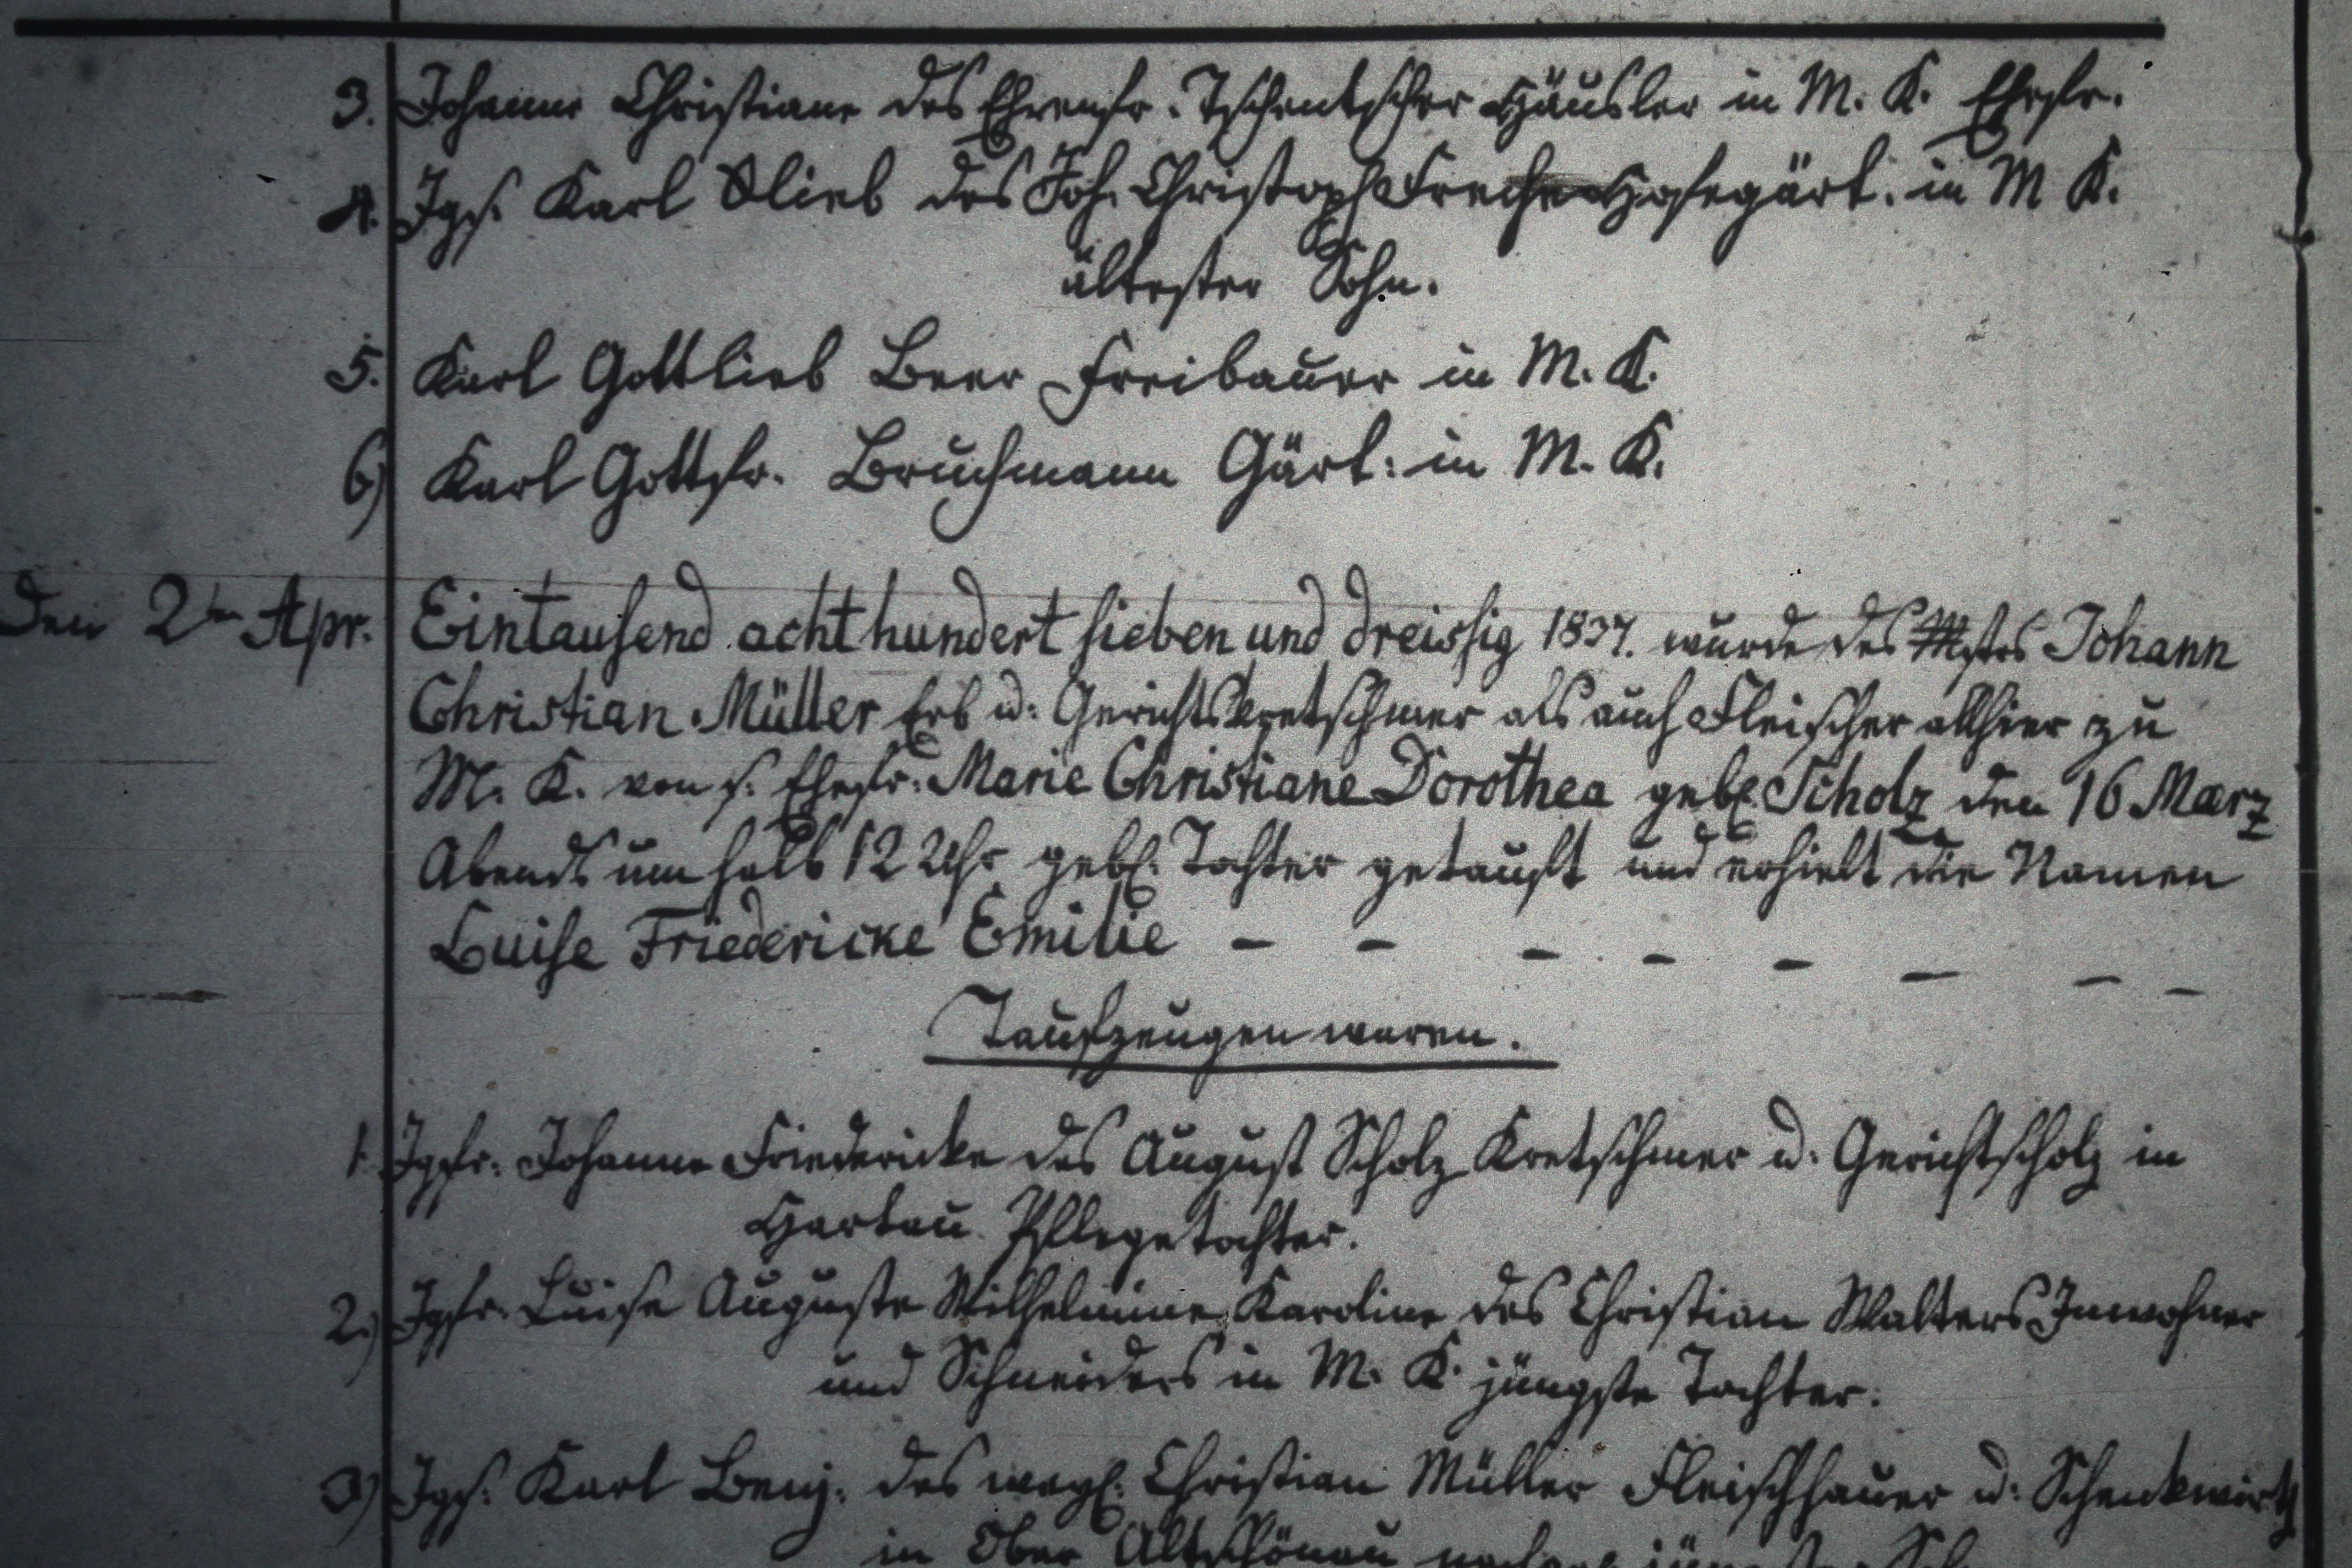 3. Johanne Christiane des Ehrenfr. Tschentscher Häusler in M. K. Ehefr.
4. Jgs. Karl Glieb des Joh. Christoph Freche Hofegärt. in M K.
ältester Sohn.
5. Karl Gottlieb Beer Freibauer in M. K.
6) Karl Gottfr. Bruchmann Gärt: in M. K.
Den 2ten Apr. Eintausend achthundert sieben und dreissig 1837. wurde des Mstrs Johann
Christian Müller Erb u: Gerichtskretschmer als auch Fleischer allhier zu
M. K. von s. Ehefr: Marie Christiane Dorothea geb. Scholz den 16 Maerz
Abends um halb 12 Uhr geb. Tochter getauft und erhielt die Namen
Luise Friedericke Emilie – – – – – – – –
Taufzeugen waren.
1. Jgfr. Johanne Friedericke des August Scholz Kretschmer u: Gerichtscholz in
Hartau Pflegetochter.
2.) Jgfr. Luise Auguste Wilhelmine Karoline des Christian Walters Inwohner
und Schneiders in M. K. jüngste Tochter.
3) Jgs. Karl Benj. des weyl. Christian Müller Fleischhauer u: Schenkwirth
in Ober Altschönau